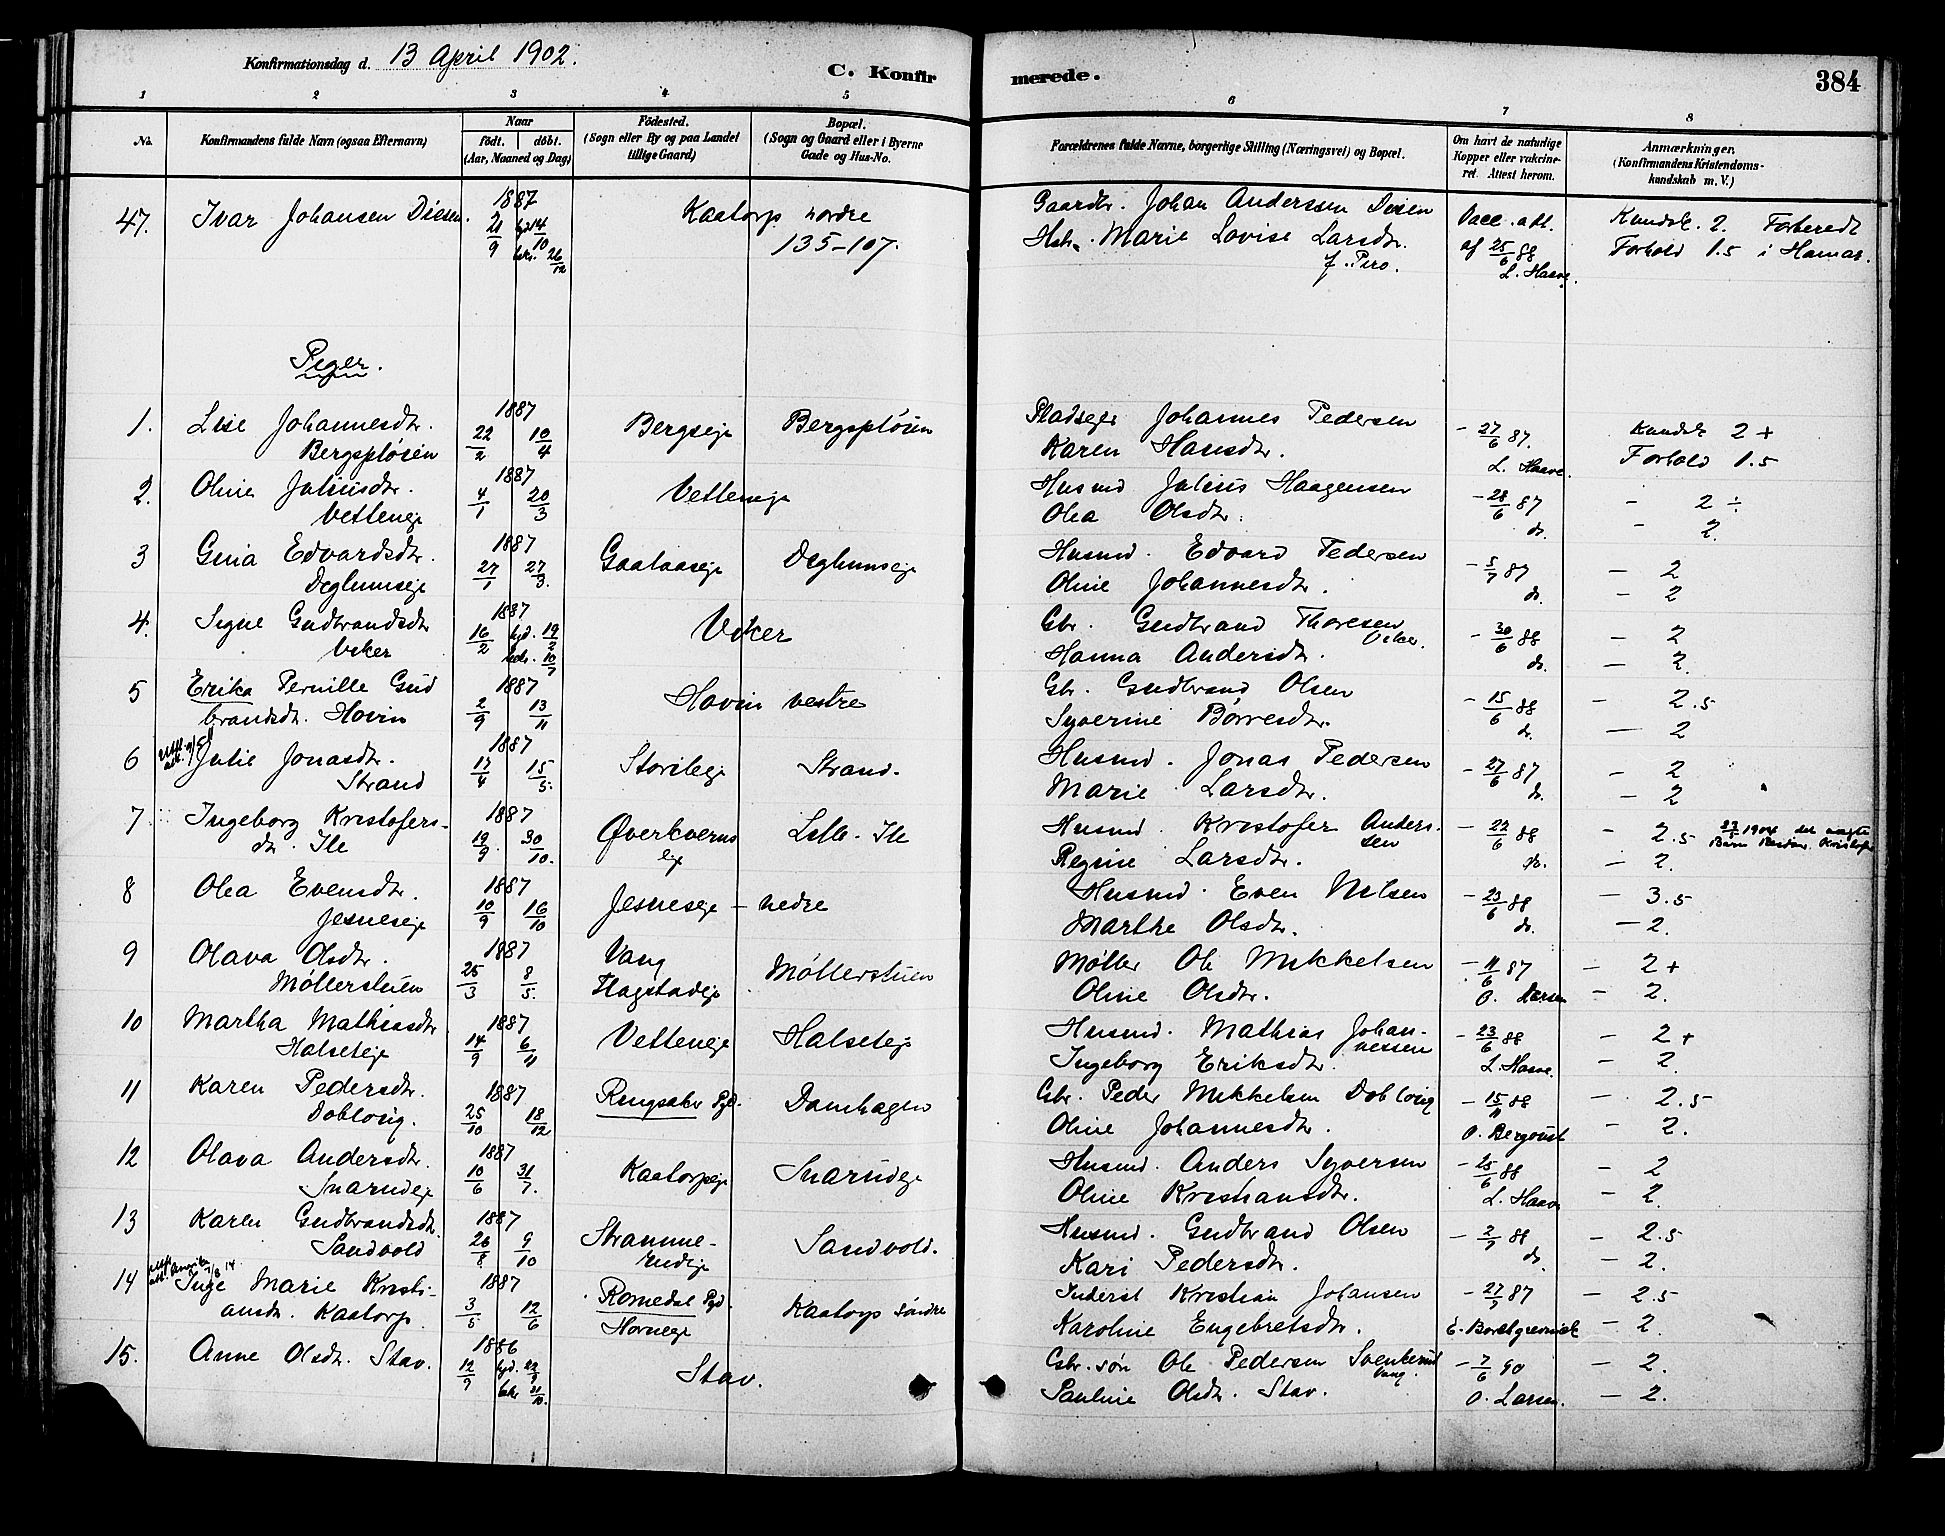 Konfirmationsdag d. 13 April 1902.
C. Konfirmerede.
384
1 2 3 4 5 6 7 8
No.
Konfirmandens fulde Navn (ogsaa Efternavn)
Naar
født. døbt.
(Aar, Maaned og Dag)
Fødested.
(Sogn eller By og paa Landet tillige Gaard)
Bopæl.
(Sogn og Gaard eller i Byerne Gade og Hus-No.
Forældrenes fulde Navne, borgerlige Stilling (Næringsvei) og Bopæl.
Om havt de naturlige Kopper eller vakcineret. Attest herom.
Anmærkninger.
(Konfirmandens Kristendomskundskab m. V.)
47. Ivar Johansen Diesen. 1887 21/9 hjd 14/10 bkr. 26/12 Kaatorp nordre 135-107. Gaardbr. Johan Andersen Diesen Vacc. att. Kundsk. 2. Forberedt
Marie Lovise Larsdtr. af 25/6 88 L. Haave. Forhold 1.5 i Hamar.
Piger.
1. Lise Johannesdtr. 1887 22/2 10/4 Bergseje Bergspløien Pladsejer Johannes Pedersen - 27/6 87. Kundsk 2+
Bergspløien Karen Hansdtr. L. Haave. Forhold 1.5
2. Oline Juliusdtr. 1887 4/1 20/3 Netteneje Husmd Julius Haagensen - 28/6 87 - 2 ÷
Olea Olsdtr. do. - 2.
3 Gina Edvardsdtr. 1887 27/1 27/3. Gaalaaseje Deglumseje Husmd. Edvard Pedersen - 5/7 87 - 2
Deglumseje Oline Johannesdtr. do. - 2
4. Signe Gudbrandsdtr 1887 16/2 hjd. 19/2 Veker Gbr. Gudbrand Thoresen Veker. - 30/6 88 - 2
Veker Hanna Andersdtr. do. - 2.
5 Erika Pernille Gud 1887 2/9 13/11 Hovin vestre Gbr. Gudbrand Olsen - 15/6 88 - 2.5
brandsdtr. Hovin Syverine Børresdtr. do. - 2
6 Julie Jonasdtr. 1887 17/4 15/5. Storileje Strand. Husmd. Jonas Pedersen - 27/6 87 - 2
Strand Marie Larsdtr. do. - 2
7. Ingeborg Kristofers- 1887 19/9. 30/10. Øverkverns Lille-Ile Husmd. Kristofer Anders- - 22/6 88 - 2.5 1904 det
dtr. Ile eje sen Regine Larsdtr. do. - 2. Barn Kristofer
8 Olea Evensdtr. 1887 10/9 16/10 Jesneseje - nedre Husmd. Even Nilsen - 23/6 88 - 3.5
Jesneseje Marthe Olsdtr. do. - 2.
9 Olava Olsdtr. 1887 25/3 8/5. Vang Møllerstuen Møller Ole Mikkelsen - 11/6 87 - 2+
Møllerstuen Flagstadeje Oline Olsdtr. O. Larsen - 2.
10 Martha Mathiasdtr 1887 14/9 6/11 Vetteneje Halseteje Husmd. Mathias Johan- - 23/6 88 - 2+
Halseteje nessen Ingeborg Eriksdtr. L. Haave. - 2.
11 Karen Pedersdtr. 1887 25/10 18/12 Ringsaker Pgd. Damhagen Gbr. Peder Mikkelsen Dobloug - 15/11 88 - 2.5
Dobloug. Oline Johannesdtr. O. Bergquist - 2.
12 Olava Andersdtr. 1887 10/6 31/7. Kaatorpeje Snarudeje Husmd. Anders Syversen - 25/6 88 - 2
Snarudeje Oline Kristiansdtr. L. Haave - 2.
13 Karen Gudbrandsdtr. 1887 26/8 9/10 Stramme- Sandvold. Husmd. Gudbrand Olsen - 2/7 88 - 2.5
Sandvold rudeje Kari Pedersdtr. do. - 2.
14 Inge Marie Kristi- 1887 3/5 12/6 Romedal Pgd. Kaatorp søndre Inderst Kristian Johansen - 27/9 87 - 2.5
ansdtr. Kaatorp. Horneje Karoline Engebretsdtr. E. Borchgrevink - 2.
15. Anne Olsdtr. Stav. 1886 12/9 hjd. 22/9 bkr 31/10. Stav. Gbr. søn Ole Pedersen Svenkerud Vang. - 7/6 90 - 2.
Pauline Olsdtr. Stav. O. Larsen. - 2.